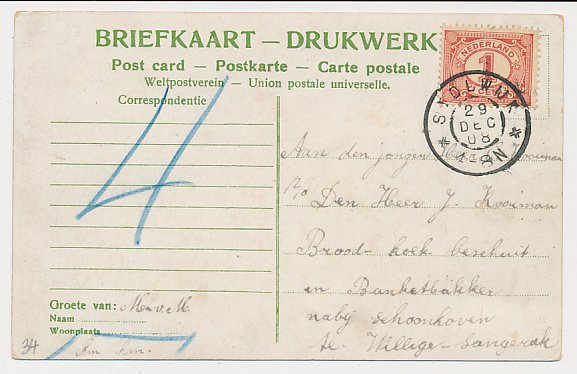 BRIEFKAART — DRUKWERK
Post card — Postkarte — Carte postale
Weltpostverein — Union postale universelle.
Correspondentie
NEDERLAND
1
CENT
STOLWIJK
29
DEC
08
4-8N
4
Aan den jongen Heer Kooiman
p/a Den Heer J. Kooiman
Brood- koek beschuit
en Banketbakker
nabij schoonhoven
te. Willige-Langerak
Groete van: M. v. M.
Naam
Woonplaats
34